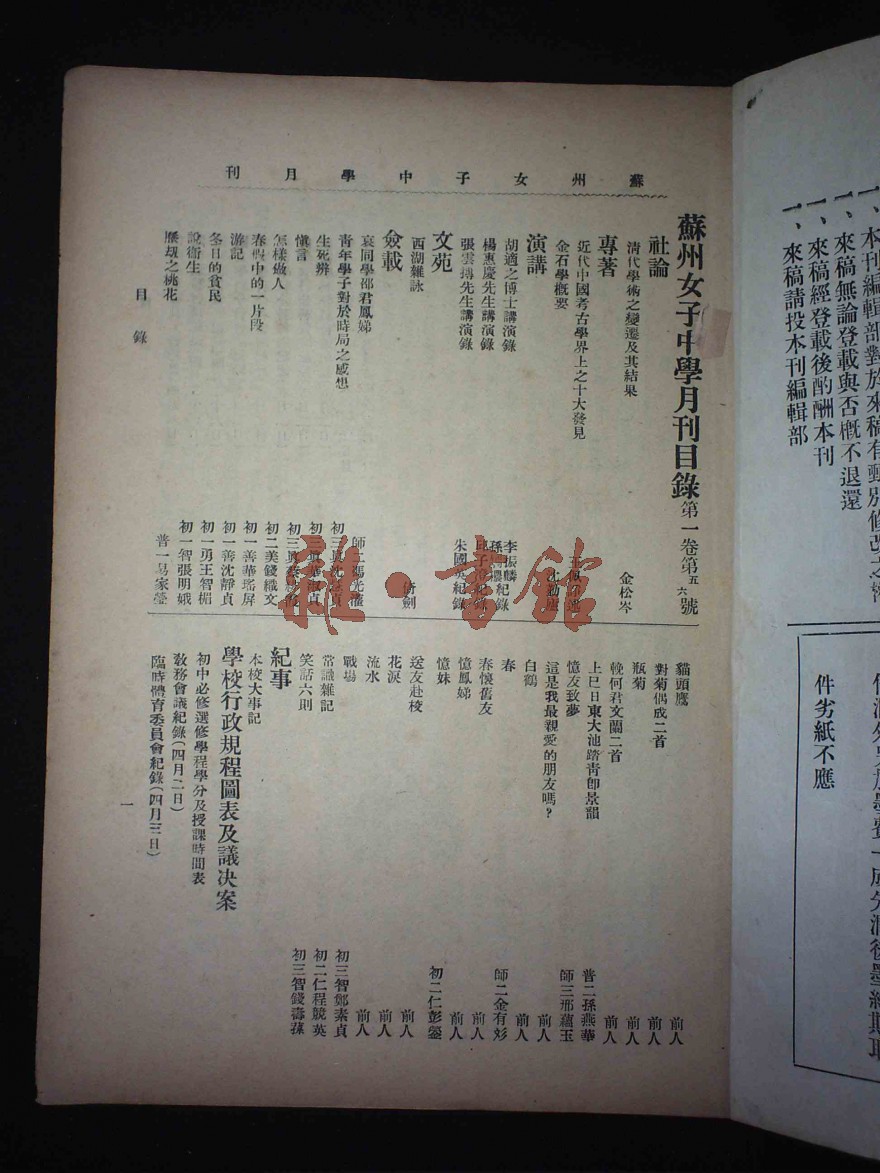 蘇州女子中學月刊
蘇州女子中學月刊目錄 第一卷第五六號
社論
清代學術之變遷及其結果 金松岑
專著
近代中國考古學界上之十大發見
金石學概要 沈勤廬
演講
胡適之博士講演錄 李振麟 紀錄
楊惠慶先生講演錄 紀錄
張雲搏先生講演錄 朱國英紀錄
文苑
西湖雜詠 劍
僉載
哀同學邵君鳳娣 師二
青年學子對於時局之感想 初三眞沈
生死辨 初三眞
愼言 初三眞蔡
怎樣做人 初二美錢織文
春假中的一片段 初一善華瑤屏
游記 初一善沈靜貞
冬日的貧民 初一勇王智楣
說衞生 初一智張明娥
歷刼之桃花 普一易家瑩
貓頭鷹 前人
對菊偶成二首 前人
瓶菊 前人
輓何君文蘭二首 前人
上巳日東大池踏靑卽景韻 普二孫燕華
憶友致夢 師三邢蘊玉
這是我最親愛的朋友嗎? 前人
白鶴 前人
春 師二金有妢
春懷舊友 前人
憶鳳娣 前人
憶妹 初二仁彭鎣
送友赴梭 前人
花淚 前人
流水 前人
戰場 初三智鄭素貞
常識雜記 初二仁程競英
笑話六則 初三智錢壽蓀
紀事
本校大事記
學校行政規程圖表及議決案
初中必修選修學程學分及授課時間表
敎務會議紀錄(四月二日)
臨時體育委員會紀錄(四月三日)
目錄
一
雅·書館
一、本刊編輯部對於來稿有
一、來稿無論登載與否概不退還
一、來稿經登載後酌酬本刊
一、來稿請投本刊編輯部
件劣紙不應